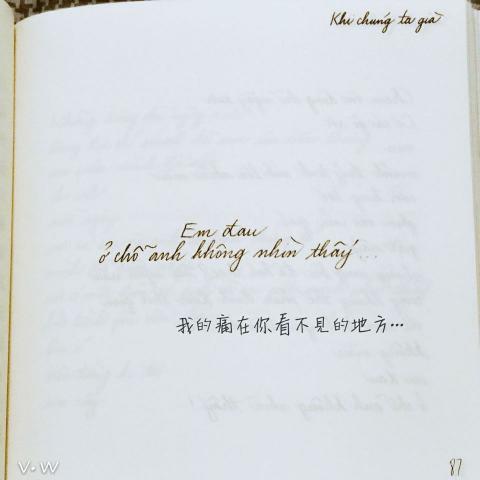 Khi chúng ta già
Em đau
ở chỗ anh không nhìn thấy...
我的痛在你看不見的地方…
87
V.W